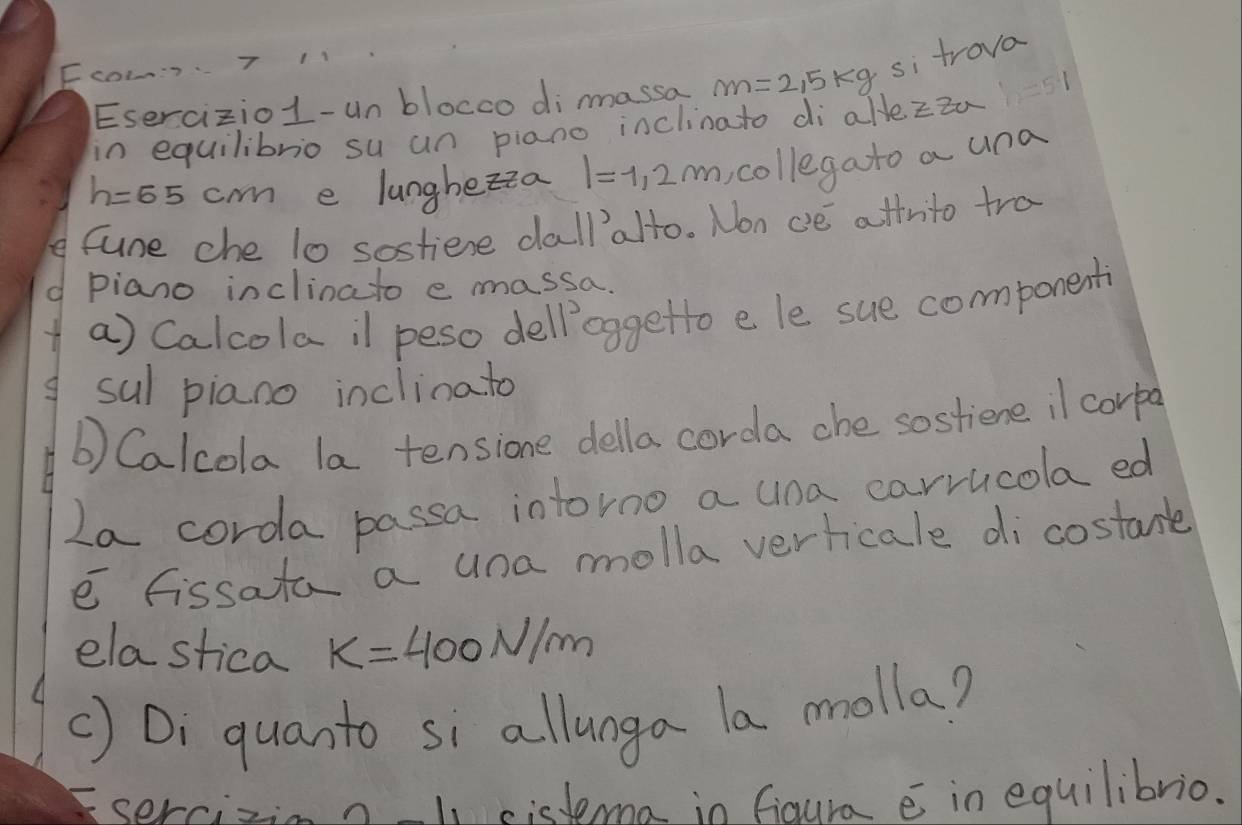 Esercizio 1 - un blocco di massa m=2,5 kg si trova
in equilibrio su un piano inclinato di altezza
h=65 cm e lunghezza l=1,2 m, collegato a una
fune che lo sostiene dall'alto. Non c'è attrito tra
piano inclinato e massa.
a) Calcola il peso dell'oggetto e le sue componenti
sul piano inclinato
b) Calcola la tensione della corda che sostiene il corpo
La corda passa intorno a una carrucola ed
è fissata a una molla verticale di costante
elastica K=400 N/m
c) Di quanto si allunga la molla?
Esercizio 2 - Il sistema in figura è in equilibrio.